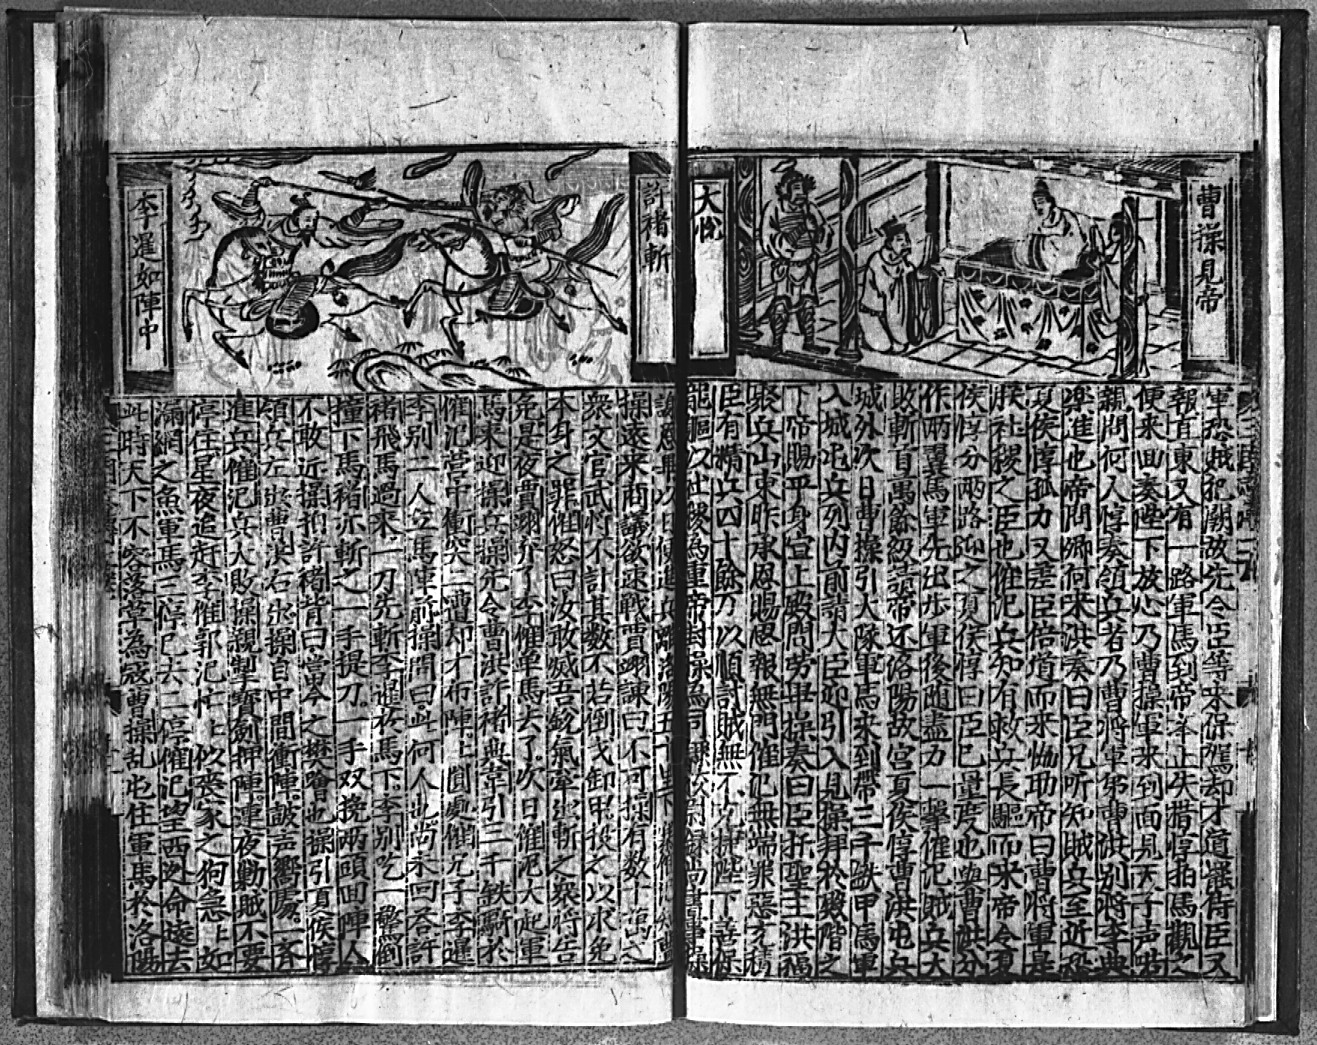 曹操見帝
大悅
軍恐賊犯闕故先令臣等來保駕却才道罷侍臣又
報直東又有一路軍馬到帝羊止失措惇拍馬觀之
便來回奏陛下放心乃曹操軍來到面見天子声喏
親問何人惇奏領兵者乃曹將軍弟曹洪別將李典
樂進也帝問卿何來洪奏曰臣兄听知賊兵至近恐
夏侯惇孤力又差臣倍道而來協助帝曰曹將軍是
朕社稷之臣也傕汜兵知有救兵長驅而來帝令夏
侯惇分兩路迎之夏侯惇曰臣已量度也與曹洪分
作兩翼馬軍先出步軍後隨盡力一擊傕汜賊兵大
敗斬首萬餘級請帝还洛陽故宮夏侯惇曹洪屯兵
城外次日曹操引大隊軍馬來到帶三千鉄甲馬軍
入城屯兵列內前請大臣迎引入見操拜於殿階之
下帝賜平身宣上殿問勞畢操奏曰臣托聖主洪福
聚兵山東昨承恩賜思報無門傕汜無端罪惡方積
臣有精兵四十餘万以順討賊無不克捷陛下善保
龍軀以社稷為重帝封操為司 尚書事操
許褚斬
李暹如陣中
操遠來商議欲速戰賈翊諫曰不可操有数十萬之
衆文官武將不計其数不若倒戈卸甲投之以求免
本身之罪傕怒曰汝敢滅吾銳氣牽出斬之衆將告
免是夜賈翊弃了李傕單馬去了次日傕汜大起軍
馬來迎操兵操先令曹洪許褚典韋引三千鉄騎於
傕汜營中衝突二遭却才布陣上圓處傕兄子李暹
李別二人立馬軍前操問曰此何人也尚未回答許
褚飛馬過來一刀先斬李暹於馬下李別吃一驚倒
撞下馬褚亦斬之一手提刀一手双挽兩頭回陣人
不敢近操拍許褚背曰當學今之樊噲也操引夏侯惇
領兵左出曹洪右出操自中間衝陣鼓声響處一斉
進兵傕汜兵大敗操親掣寶劍押陣連夜勦賊不要
停住星夜追赶李傕郭汜忙忙似喪家之狗急急如
漏網之魚軍馬三停已去二停傕汜望西逃命遠去
此時天下不容落草為寇曹操乱屯住軍馬於洛陽